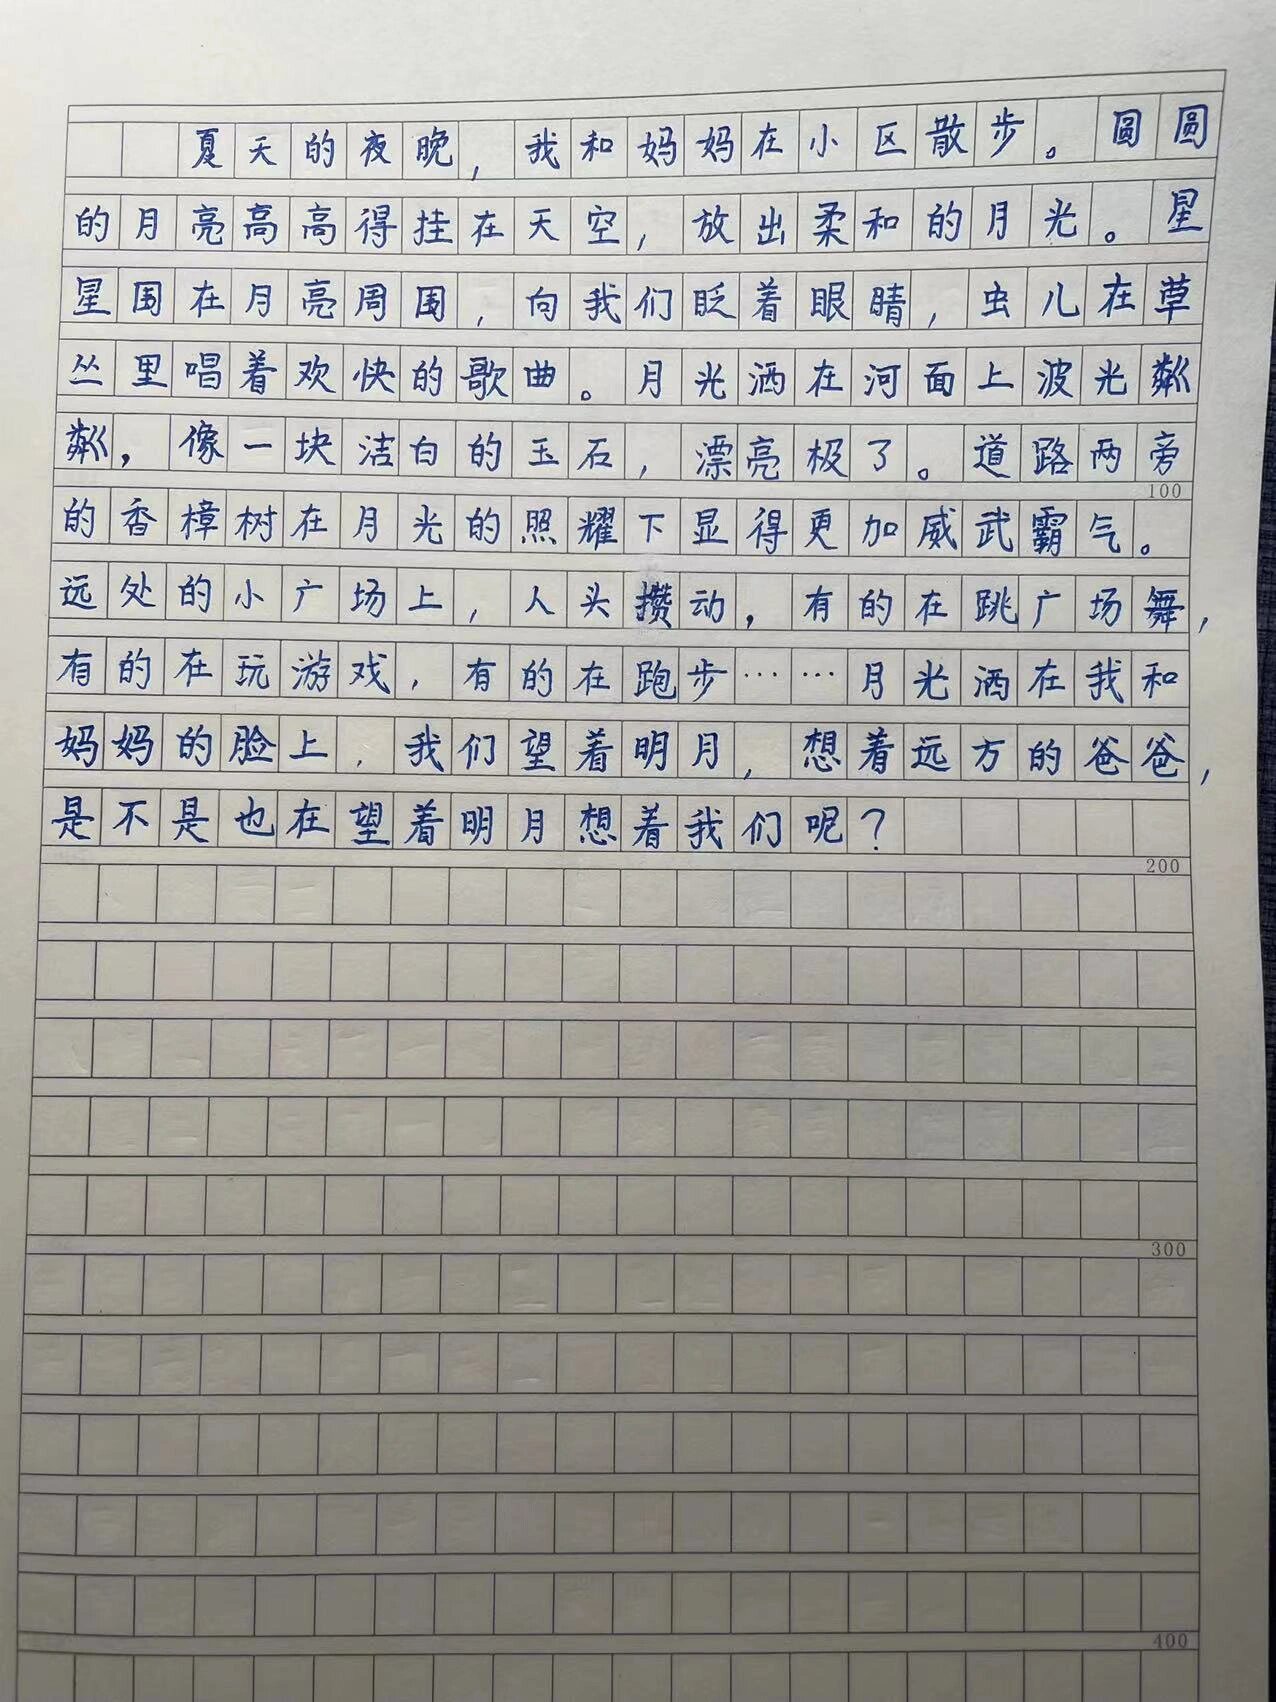 夏天的夜晚，我和妈妈在小区散步。圆圆
的月亮高高得挂在天空，放出柔和的月光。星
星围在月亮周围，向我们眨着眼睛，虫儿在草
丛里唱着欢快的歌曲。月光洒在河面上波光粼
粼，像一块洁白的玉石，漂亮极了。道路两旁
100
的香樟树在月光的照耀下显得更加威武霸气。
远处的小广场上，人头攒动，有的在跳广场舞，
有的在玩游戏，有的在跑步……月光洒在我和
妈妈的脸上，我们望着明月，想着远方的爸爸，
是不是也在望着明月想着我们呢？
200
300
400